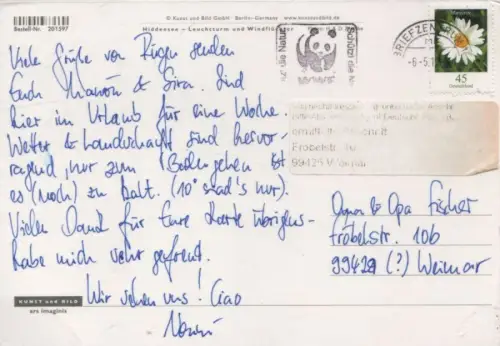 © Kunst und Bild GmbH Berlin-Germany www.kunstundbild.de
Bestell-Nr. 201597
Hiddensee – Leuchtturm und Windflüchter
BRIEFZENTRUM
-6-5.1
45
Deutschland
Viele Grüße von Rügen senden
Euch & Sira. Sind
hier im Urlaub für eine Woche.
Wetter & Landschaft sind hervor-
ragend, nur zum Baden gehen ist
es (noch) zu kalt. (10° sind's nur).
Vielen Dank für Eure Karte übrigens -
habe mich sehr gefreut.
Wir sehen uns! Ciao
Fröbelstr. 10
99425 Weimar
Oma & Opa Fischer
Fröbelstr. 10b
99429 (?) Weimar
KUNST und BILD
ars imaginis